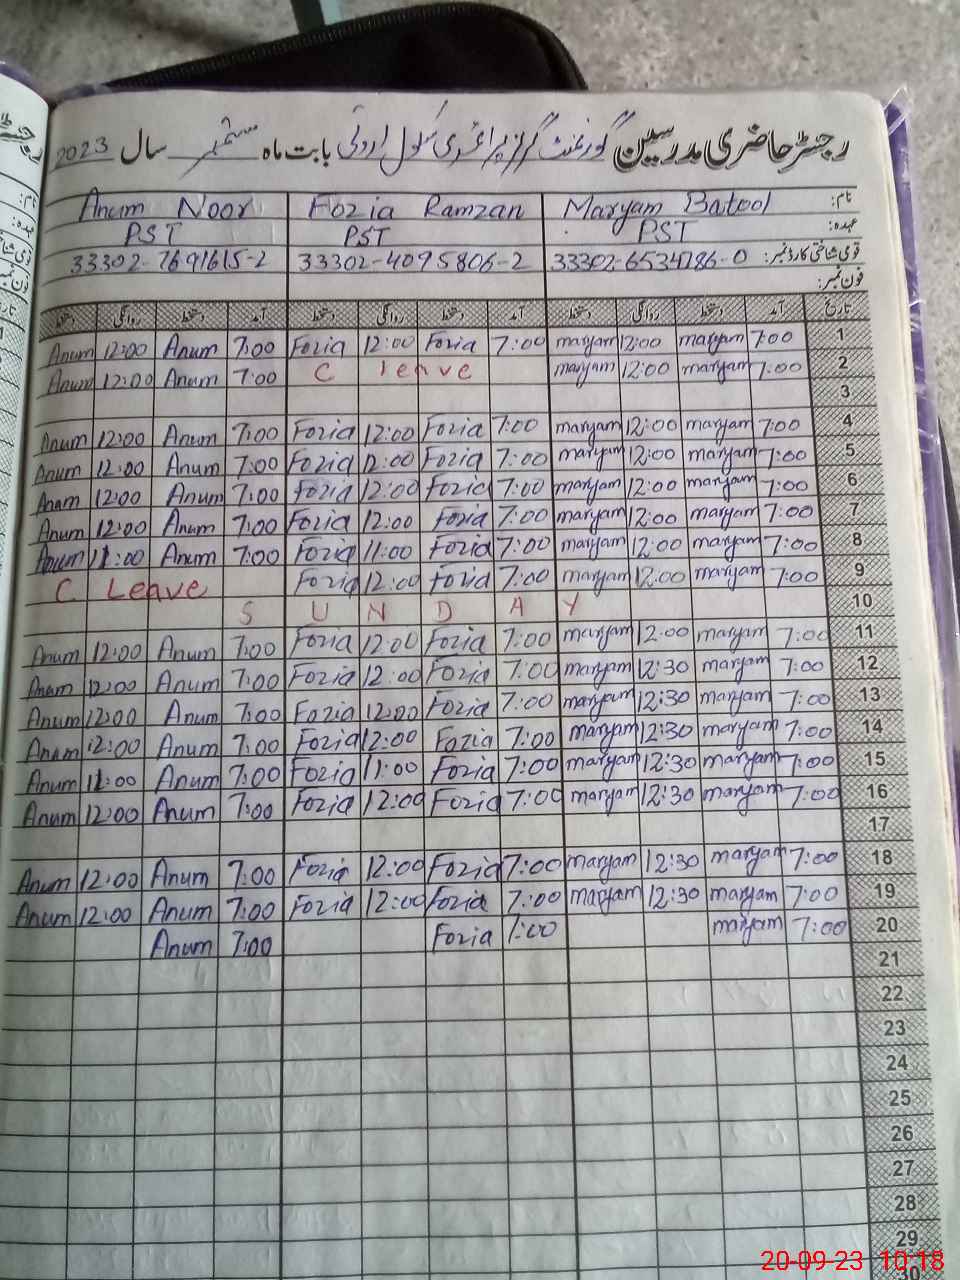 رجسٹر حاضری مدرسین گورنمنٹ گرلز پرائمری سکول بابت ماہ ستمبر سال 2023
نام: Maryam Batool Fozia Ramzan Anum Noor
عہدہ: PST PST PST
قومی شناختی کارڈ نمبر: 33302-6534786-0 33302-4095806-2 33302-7691615-2
فون نمبر:
تاریخ آمد دستخط روانگی دستخط آمد دستخط روانگی دستخط آمد دستخط روانگی دستخط
Anum 12:00 Anum 7:00 Fozia 12:00 Fozia 7:00 maryam 12:00 maryam 7:00 1
Anum 12:00 Anum 7:00 C leave maryam 12:00 maryam 7:00 2
3
Anum 12:00 Anum 7:00 Fozia 12:00 Fozia 7:00 maryam 12:00 maryam 7:00 4
Anum 12:00 Anum 7:00 Fozia 12:00 Fozia 7:00 maryam 12:00 maryam 7:00 5
Anam 12:00 Anum 7:00 Fozia 12:00 Fozia 7:00 maryam 12:00 maryam 7:00 6
Anum 12:00 Anum 7:00 Fozia 12:00 Fozia 7:00 maryam 12:00 maryam 7:00 7
Anum 11:00 Anum 7:00 Fozia 11:00 Fozia 7:00 maryam 12:00 maryam 7:00 8
C Leave Fozia 12:00 Fozia 7:00 maryam 12:00 maryam 7:00 9
S U N D A Y 10
Anum 12:00 Anum 7:00 Fozia 12:00 Fozia 7:00 maryam 12:00 maryam 7:00 11
Anum 12:00 Anum 7:00 Fozia 12:00 Fozia 7:00 maryam 12:30 maryam 7:00 12
Anum 12:00 Anum 7:00 Fozia 12:00 Fozia 7:00 maryam 12:30 maryam 7:00 13
Anum 12:00 Anum 7:00 Fozia 12:00 Fozia 7:00 maryam 12:30 maryam 7:00 14
Anum 11:00 Anum 7:00 Fozia 11:00 Fozia 7:00 maryam 12:30 maryam 7:00 15
Anum 12:00 Anum 7:00 Fozia 12:00 Fozia 7:00 maryam 12:30 maryam 7:00 16
17
Anum 12:00 Anum 7:00 Fozia 12:00 Fozia 7:00 maryam 12:30 maryam 7:00 18
Anum 12:00 Anum 7:00 Fozia 12:00 Fozia 7:00 maryam 12:30 maryam 7:00 19
Anum 7:00 Fozia 7:00 maryam 7:00 20
21
22
23
24
25
26
27
28
29
30
20-09-23 10:18